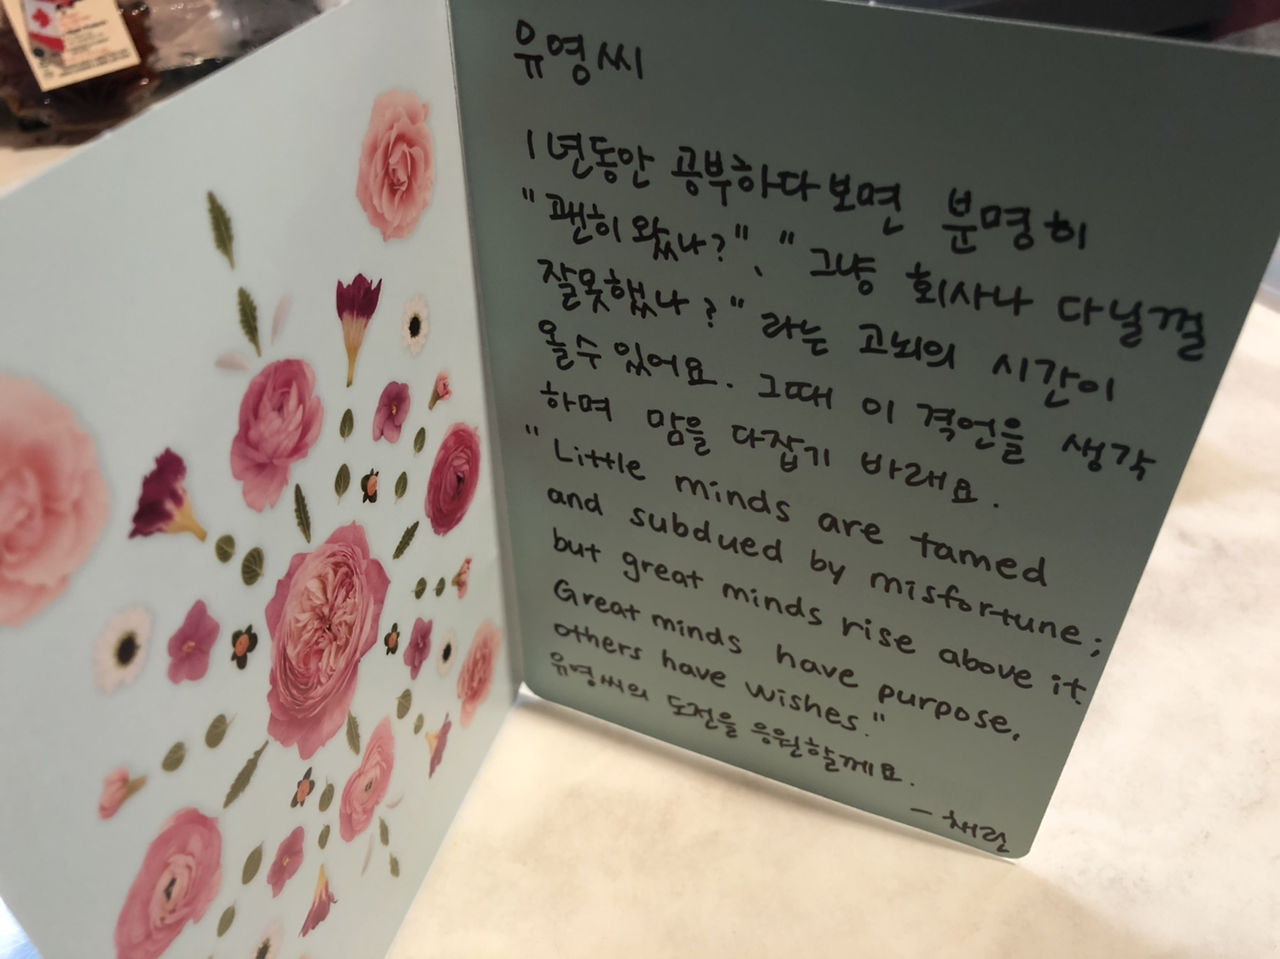 유영씨
1년동안 공부하다보면 분명히
"괜히 왔나?", "그냥 회사나 다닐껄
잘못했나?" 라는 고뇌의 시간이
올수 있어요. 그때 이 격언을 생각
하며 맘을 다잡기 바래요.
"Little minds are tamed
and subdued by misfortune;
but great minds rise above it.
Great minds have purpose,
others have wishes."
유영씨의 도전을 응원할께요.
- 채린